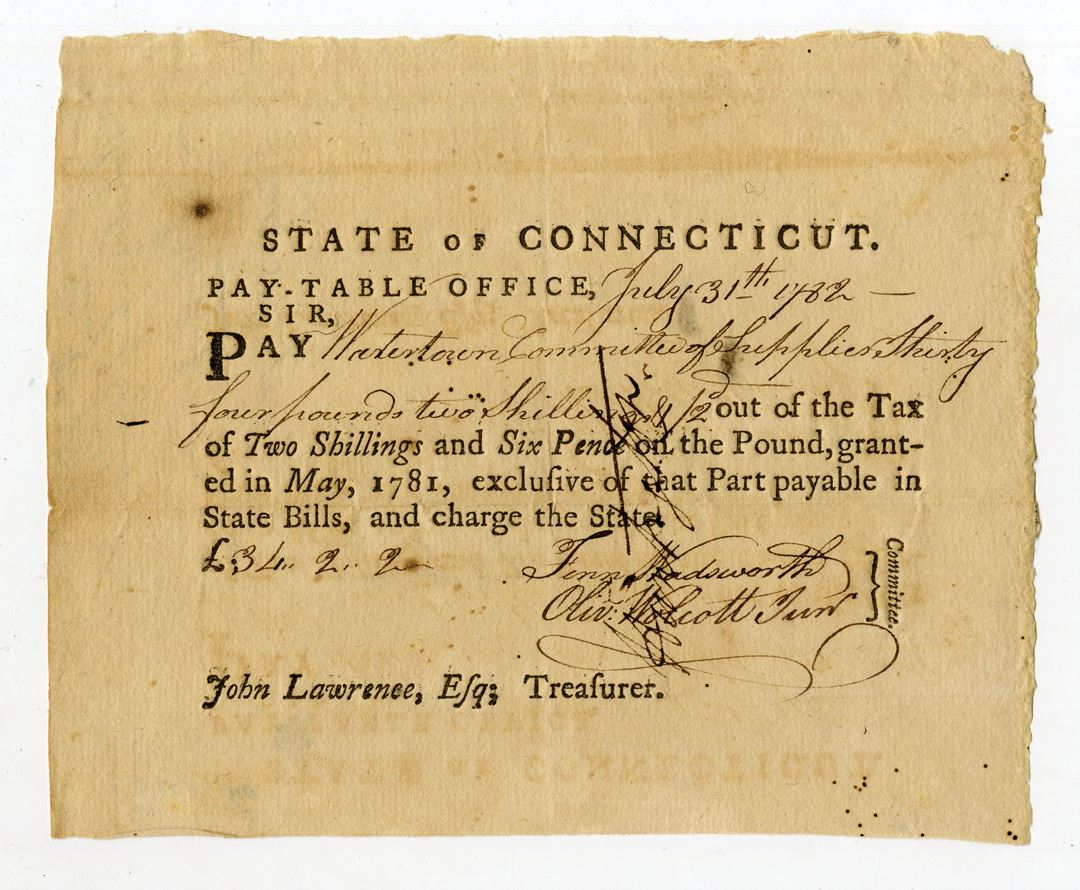 STATE OF CONNECTICUT.
PAY-TABLE OFFICE, July 31th 1782 —
SIR,
PAY Watertown Committee of Supplies Thirty
four pounds two Shillings & /2d out of the Tax
of Two Shillings and Six Pence on the Pound, grant-
ed in May, 1781, excluſive of that Part payable in
State Bills, and charge the State.
£34.. 2.. 2
Fenn Wadsworth
Oliv: Wolcott Junr
Committee.
John Lawrence, Eſq; Treaſurer.